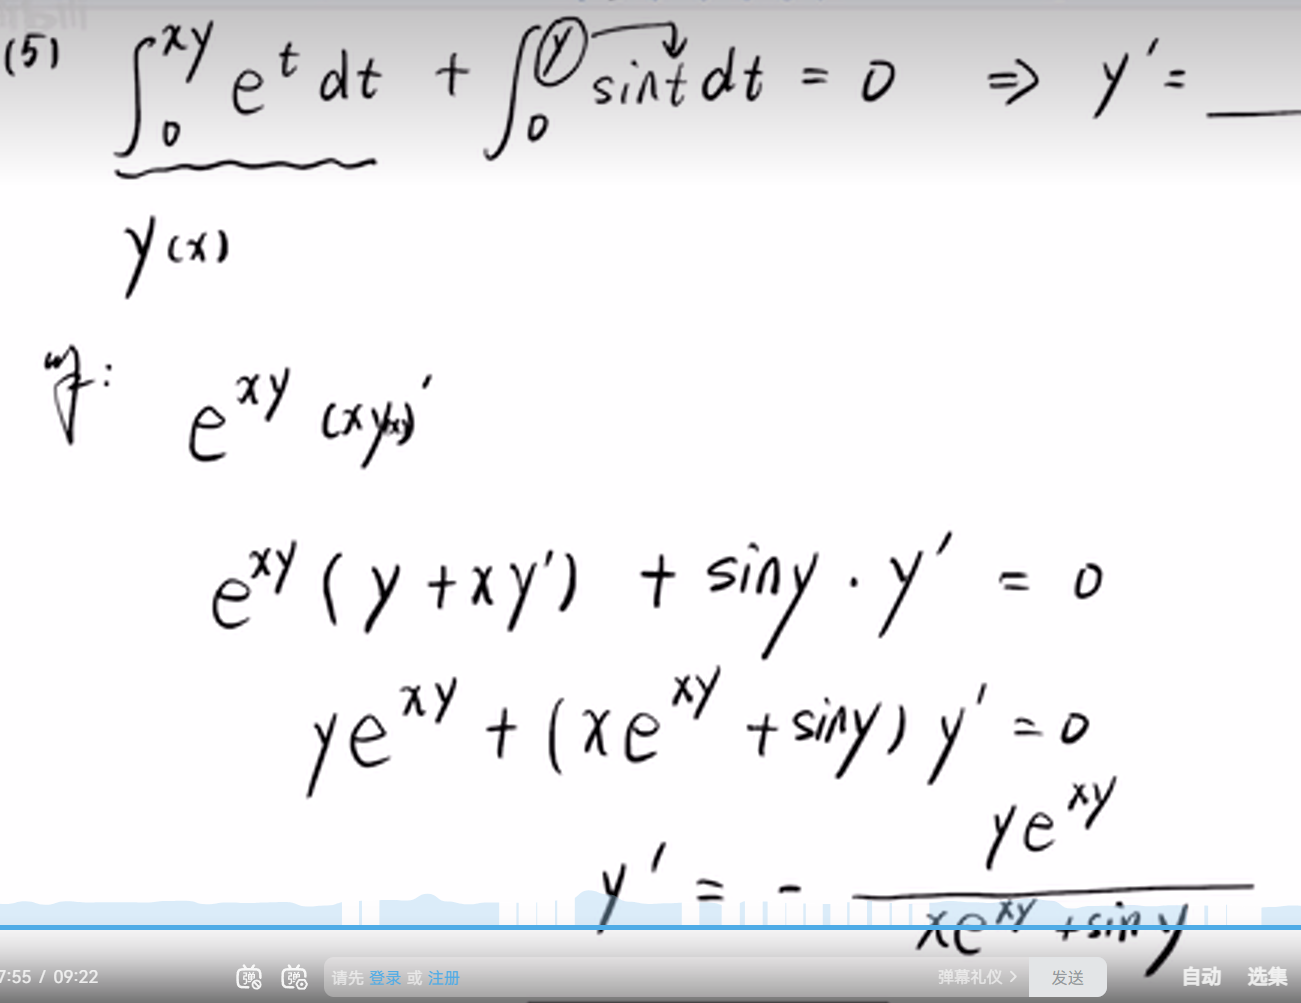 (5) ∫₀^{xy} e^t dt + ∫₀^{y} sint dt = 0 ⇒ y′ = ___
y(x)
e^{xy} (xy(x))′
e^{xy} (y + xy′) + siny · y′ = 0
ye^{xy} + (xe^{xy} + siny) y′ = 0
y′ = - ye^{xy} / (xe^{xy} + siny)
7:55 / 09:22 弹 弹 请先 登录 或 注册 弹幕礼仪 > 发送 自动 选集